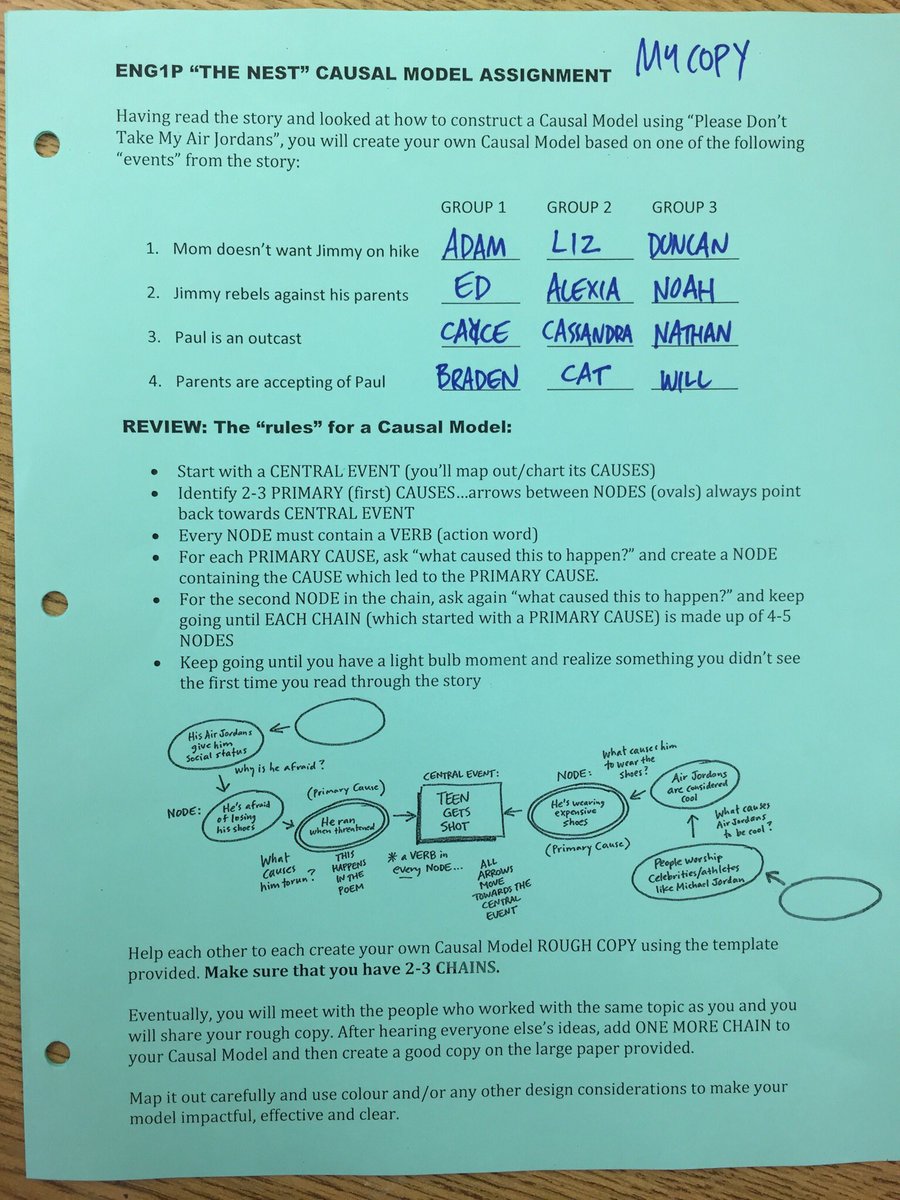 ENG1P “THE NEST” CAUSAL MODEL ASSIGNMENT
MY COPY
Having read the story and looked at how to construct a Causal Model using “Please Don’t
Take My Air Jordans”, you will create your own Causal Model based on one of the following
“events” from the story:
GROUP 1 GROUP 2 GROUP 3
1. Mom doesn’t want Jimmy on hike ADAM LIZ DUNCAN
2. Jimmy rebels against his parents ED ALEXIA NOAH
3. Paul is an outcast CAYCE CASSANDRA NATHAN
4. Parents are accepting of Paul BRADEN CAT WILL
REVIEW: The “rules” for a Causal Model:
• Start with a CENTRAL EVENT (you’ll map out/chart its CAUSES)
• Identify 2-3 PRIMARY (first) CAUSES…arrows between NODES (ovals) always point
back towards CENTRAL EVENT
• Every NODE must contain a VERB (action word)
• For each PRIMARY CAUSE, ask “what caused this to happen?” and create a NODE
containing the CAUSE which led to the PRIMARY CAUSE.
• For the second NODE in the chain, ask again “what caused this to happen?” and keep
going until EACH CHAIN (which started with a PRIMARY CAUSE) is made up of 4-5
NODES
• Keep going until you have a light bulb moment and realize something you didn’t see
the first time you read through the story
His Air Jordans
give him
social status
why is he afraid?
NODE:
He's afraid
of losing
his shoes
What
causes
him to run?
(Primary Cause)
He ran
when threatened
THIS
HAPPENS
IN THE
POEM
CENTRAL EVENT:
TEEN
GETS
SHOT
* a VERB in
every NODE...
ALL
ARROWS
MOVE
TOWARDS THE
CENTRAL
EVENT
NODE:
He's wearing
expensive
shoes
(Primary Cause)
What causes him
to wear the
shoes?
Air Jordans
are considered
cool
What causes
Air Jordans
to be cool?
People worship
Celebrities/athletes
like Michael Jordan
Help each other to each create your own Causal Model ROUGH COPY using the template
provided. Make sure that you have 2-3 CHAINS.
Eventually, you will meet with the people who worked with the same topic as you and you
will share your rough copy. After hearing everyone else’s ideas, add ONE MORE CHAIN to
your Causal Model and then create a good copy on the large paper provided.
Map it out carefully and use colour and/or any other design considerations to make your
model impactful, effective and clear.